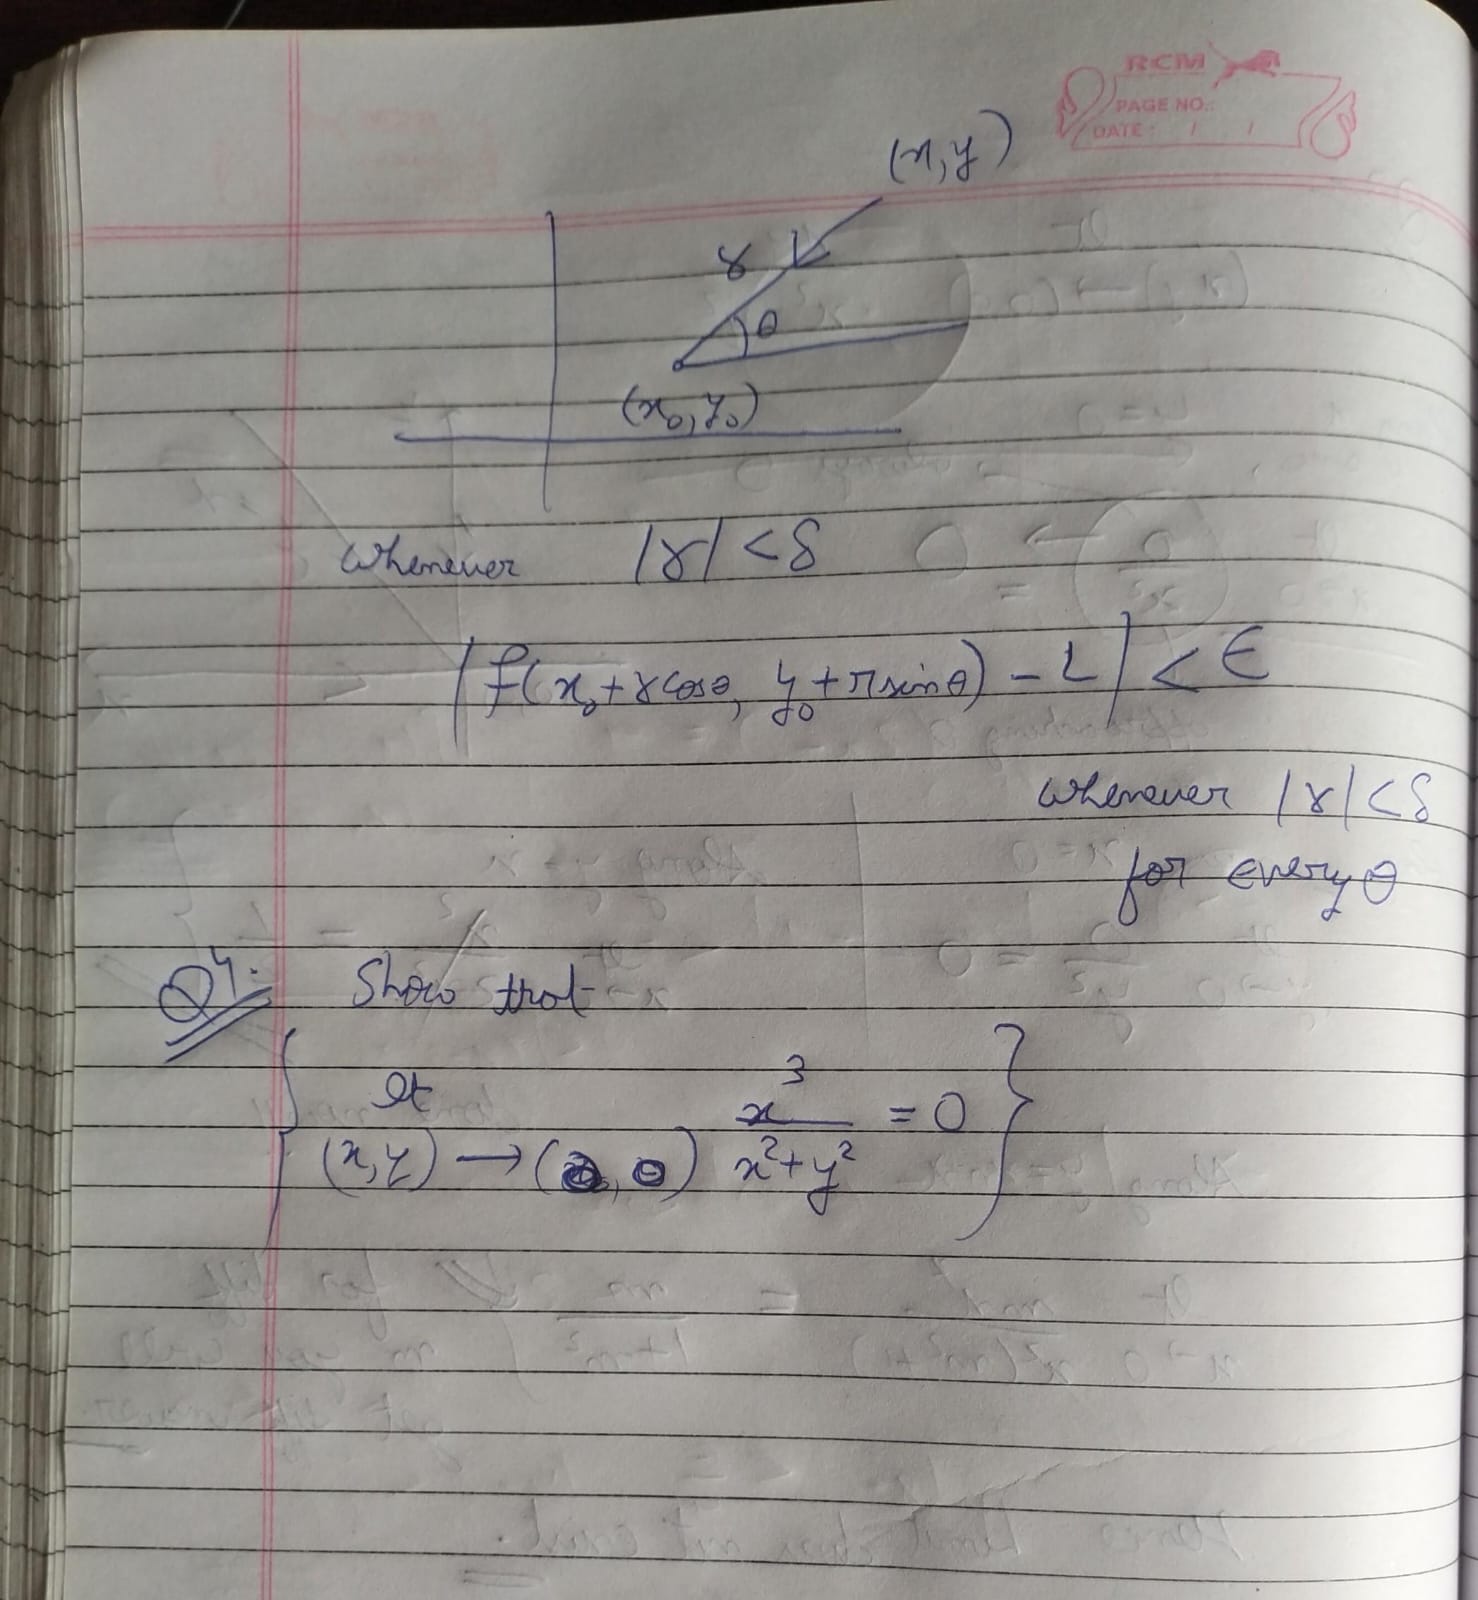 RCM
PAGE NO.:
DATE: / /
(x, y)
r
θ
(x₀, y₀)
Whenever |r| < δ
|f(x₀ + r cosθ, y₀ + r sinθ) - L| < ϵ
whenever |r| < δ
for every θ
Q4. Show that
{ lt (x, y) → (0, 0) x³/(x² + y²) = 0 }